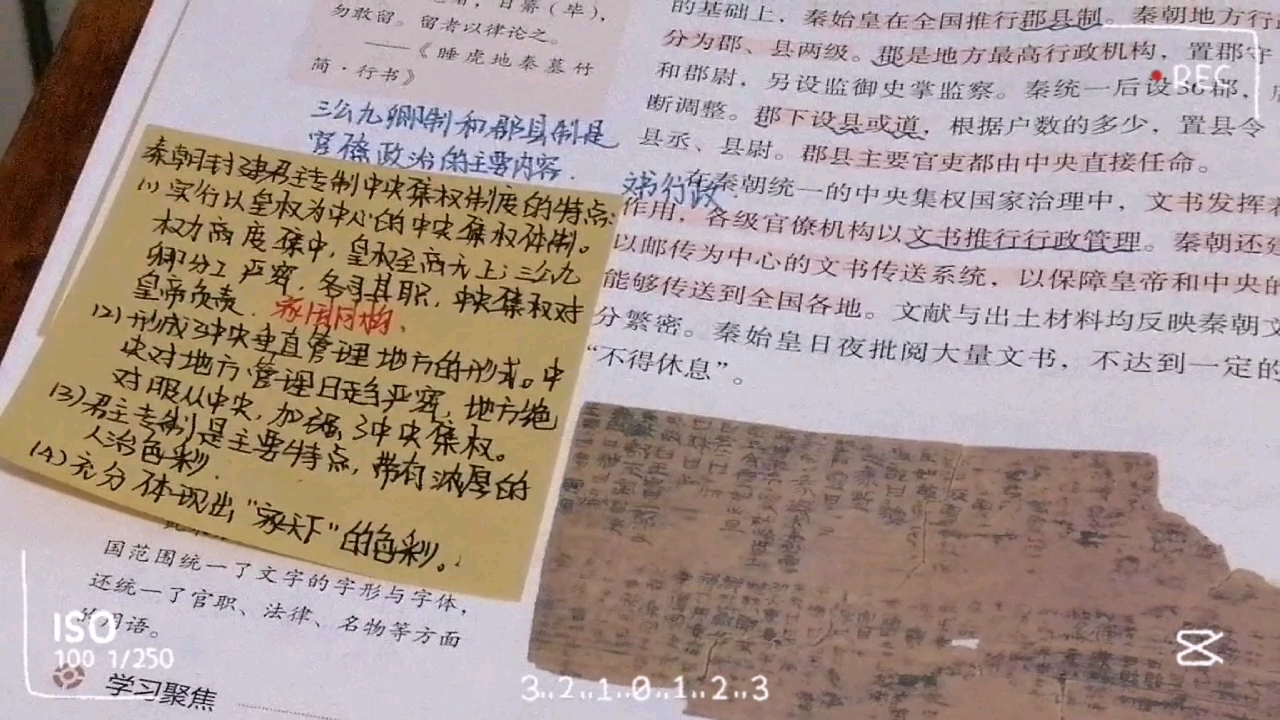 勿敢留。留者以律论之。
——《睡虎地秦墓竹
简·行书》
三公九卿制和郡县制是
官僚政治的主要内容.
秦朝封建君主专制中央集权制度的特点:
(1)实行以皇权为中心的中央集权体制。
权力高度集中,皇权至高无上;三公九
卿分工严密,各司其职,中央集权对
皇帝负责. 家国同构.
(2)形成了中央垂直管理地方的形式。中
央对地方管理日趋严密,地方绝
对服从中央,加强了中央集权。
(3)君主专制是主要特点,带有浓厚的
人治色彩.
(4)充分体现出"家天下"的色彩。
国范围统一了文字的字形与字体,
还统一了官职、法律、名物等方面
用语。
学习聚焦
的基础上,秦始皇在全国推行郡县制。秦朝地方行
分为郡、县两级。郡是地方最高行政机构,置郡守
和郡尉,另设监御史掌监察。秦统一后设36郡,
断调整。郡下设县或道,根据户数的多少,置县令
县丞、县尉。郡县主要官吏都由中央直接任命。
文书行政
在秦朝统一的中央集权国家治理中,文书发挥
作用,各级官僚机构以文书推行行政管理。秦朝还
以邮传为中心的文书传送系统,以保障皇帝和中央的
能够传送到全国各地。文献与出土材料均反映秦朝文
分繁密。秦始皇日夜批阅大量文书,不达到一定的
“不得休息”。
REC
ISO
100 1/250
3..2..1..0..1..2..3